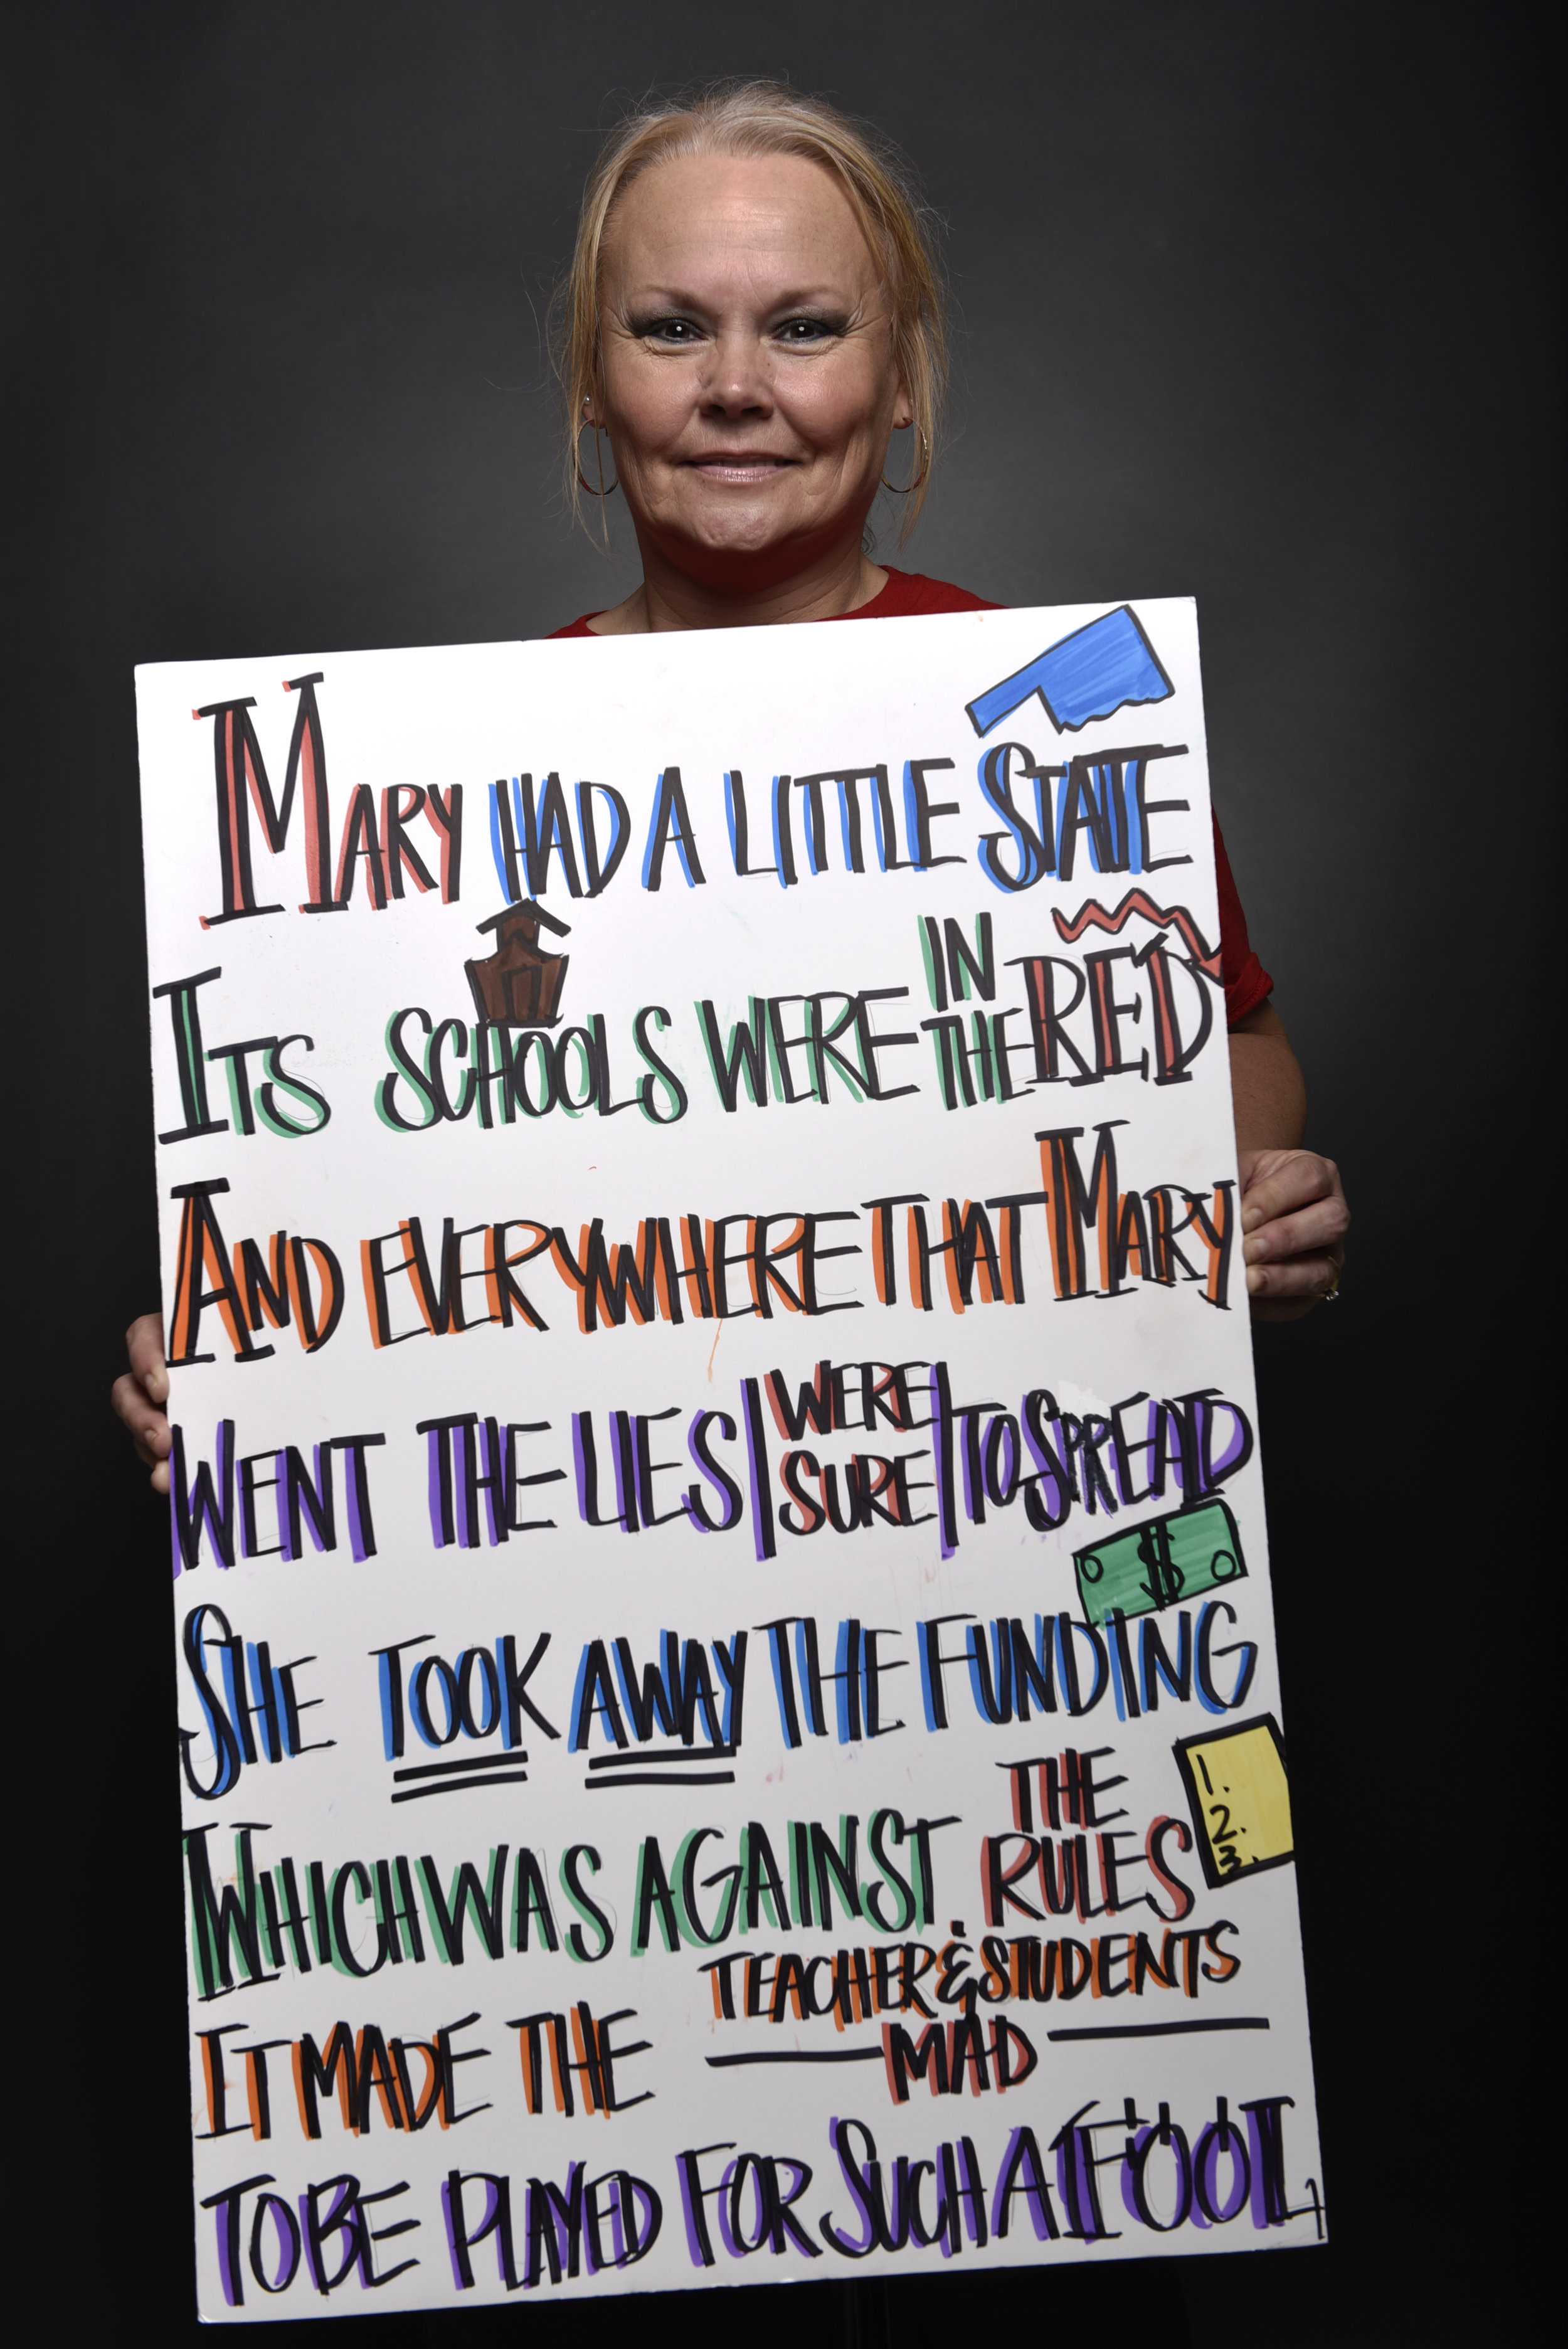 MARY HAD A LITTLE STATE
ITS SCHOOLS WERE IN THE RED
AND EVERYWHERE THAT MARY
WENT THE LIES WERE SURE TO SPREAD
$
SHE TOOK AWAY THE FUNDING
WHICH WAS AGAINST THE RULES
1.
2.
3.
IT MADE THE TEACHER & STUDENTS MAD
TO BE PLAYED FOR SUCH A FOOL